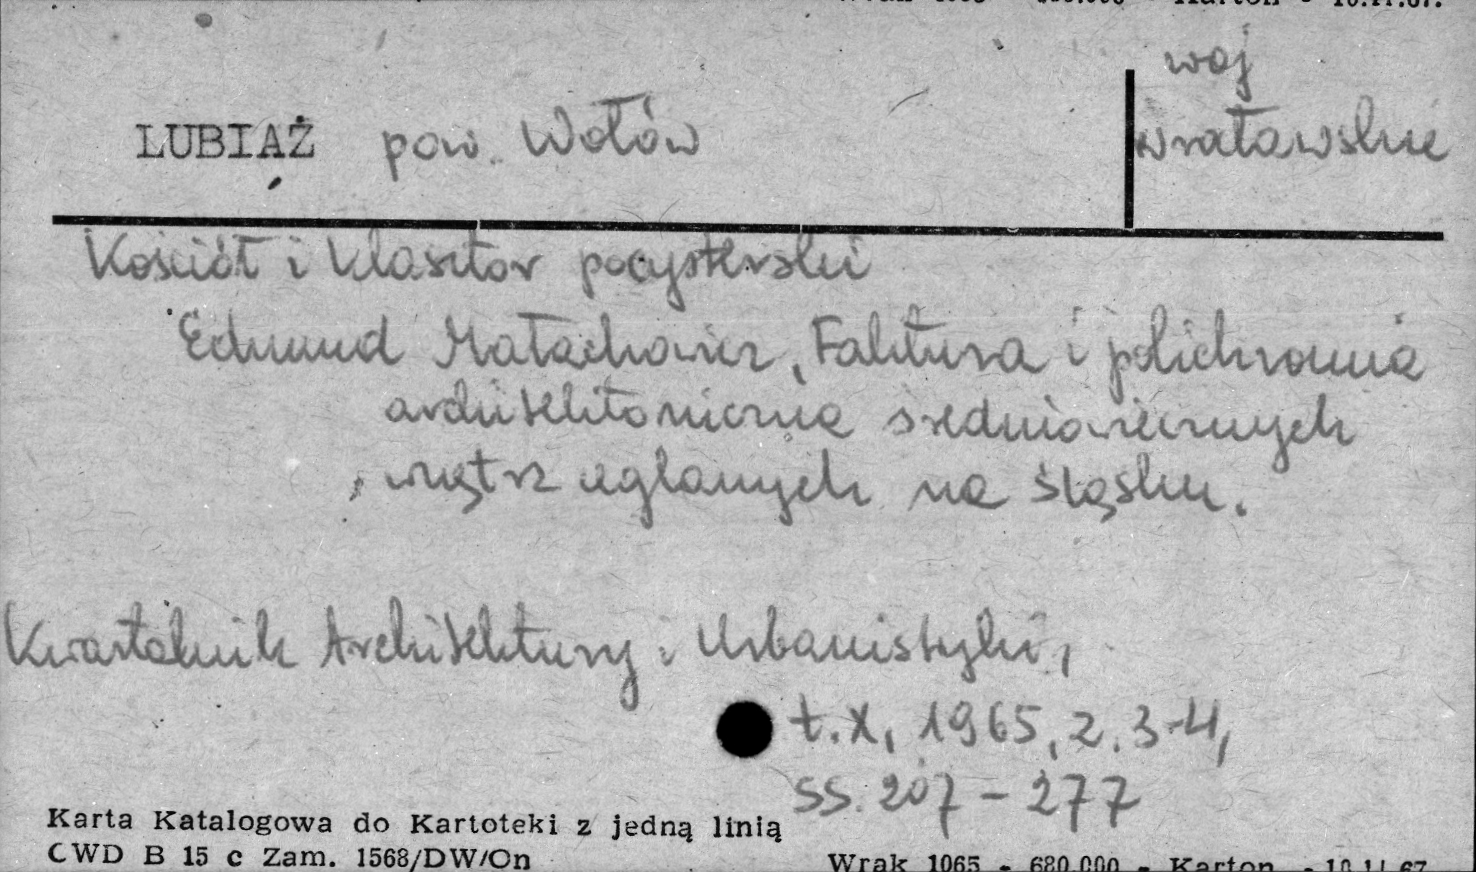 woj
LUBIĄŻ pow. Wołów wrocławskie
Kościół i klasztor pocysterski
Edmund Małachowicz, Faktura i polichromia
architektoniczna średniowiecznych
wnętrz ceglanych na Śląsku.
Kwartalnik Architektury i Urbanistyki,
t. X, 1965, z. 3-4,
ss. 207 - 277
Karta Katalogowa do Kartoteki z jedną linią
CWD B 15 c Zam. 1568/DW/On
Wrak 1065 - 680.000 - Karton - 10.11.67.